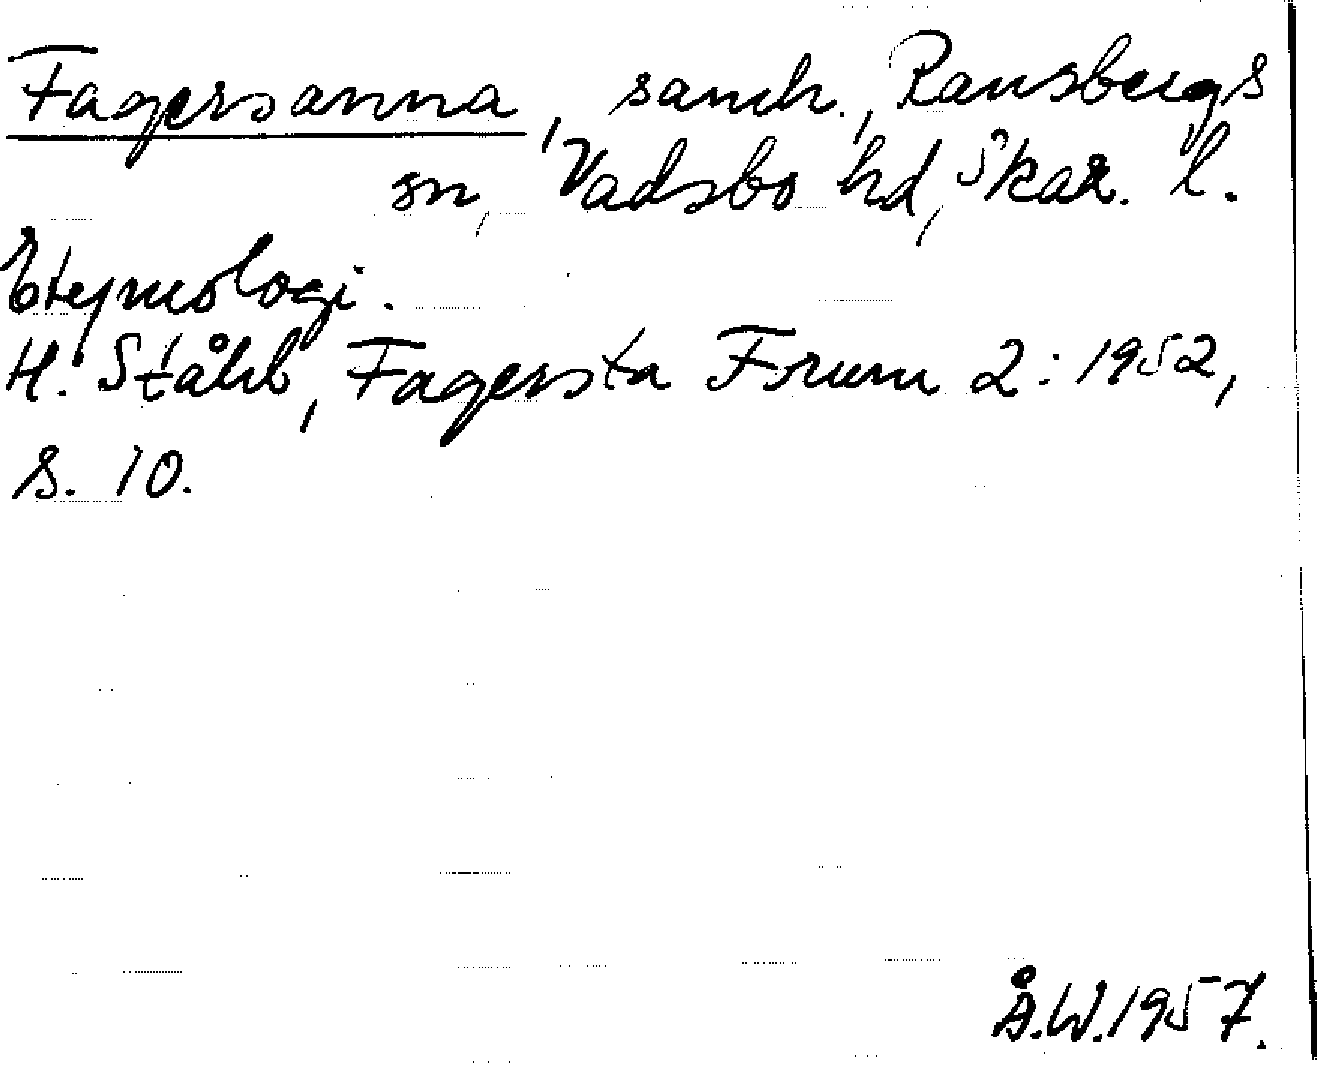 Fagersanna, samh., Ransbergs
sn, Vadsbo hd, Skar. l.
Etymologi.
H. Ståhl, Fagersta Forum 2: 1952,
s. 10.
Å.W. 1957.